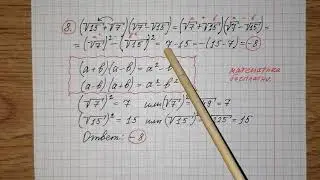 8. (√15 + √7)(√7 - √15) = (√7 + √15)(√7 - √15) =
= (√7)² - (√15)² = 7 - 15 = -(15 - 7) = -8
(a+b)(a-b) = a² - b²
(a-b)(a+b) = a² - b²
математика
бесплатно
(√7)² = 7 или (√7)² = √49 = 7
(√15)² = 15 или (√15)² = √225 = 15
Ответ: -8